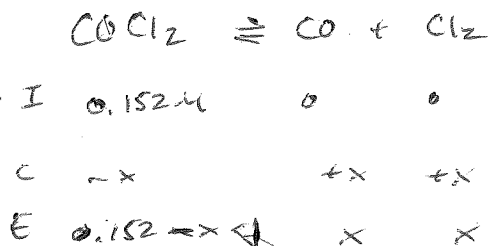 COCl₂ ⇌ CO + Cl₂
I 0.152M 0 0
C -x +x +x
E 0.152-x x x